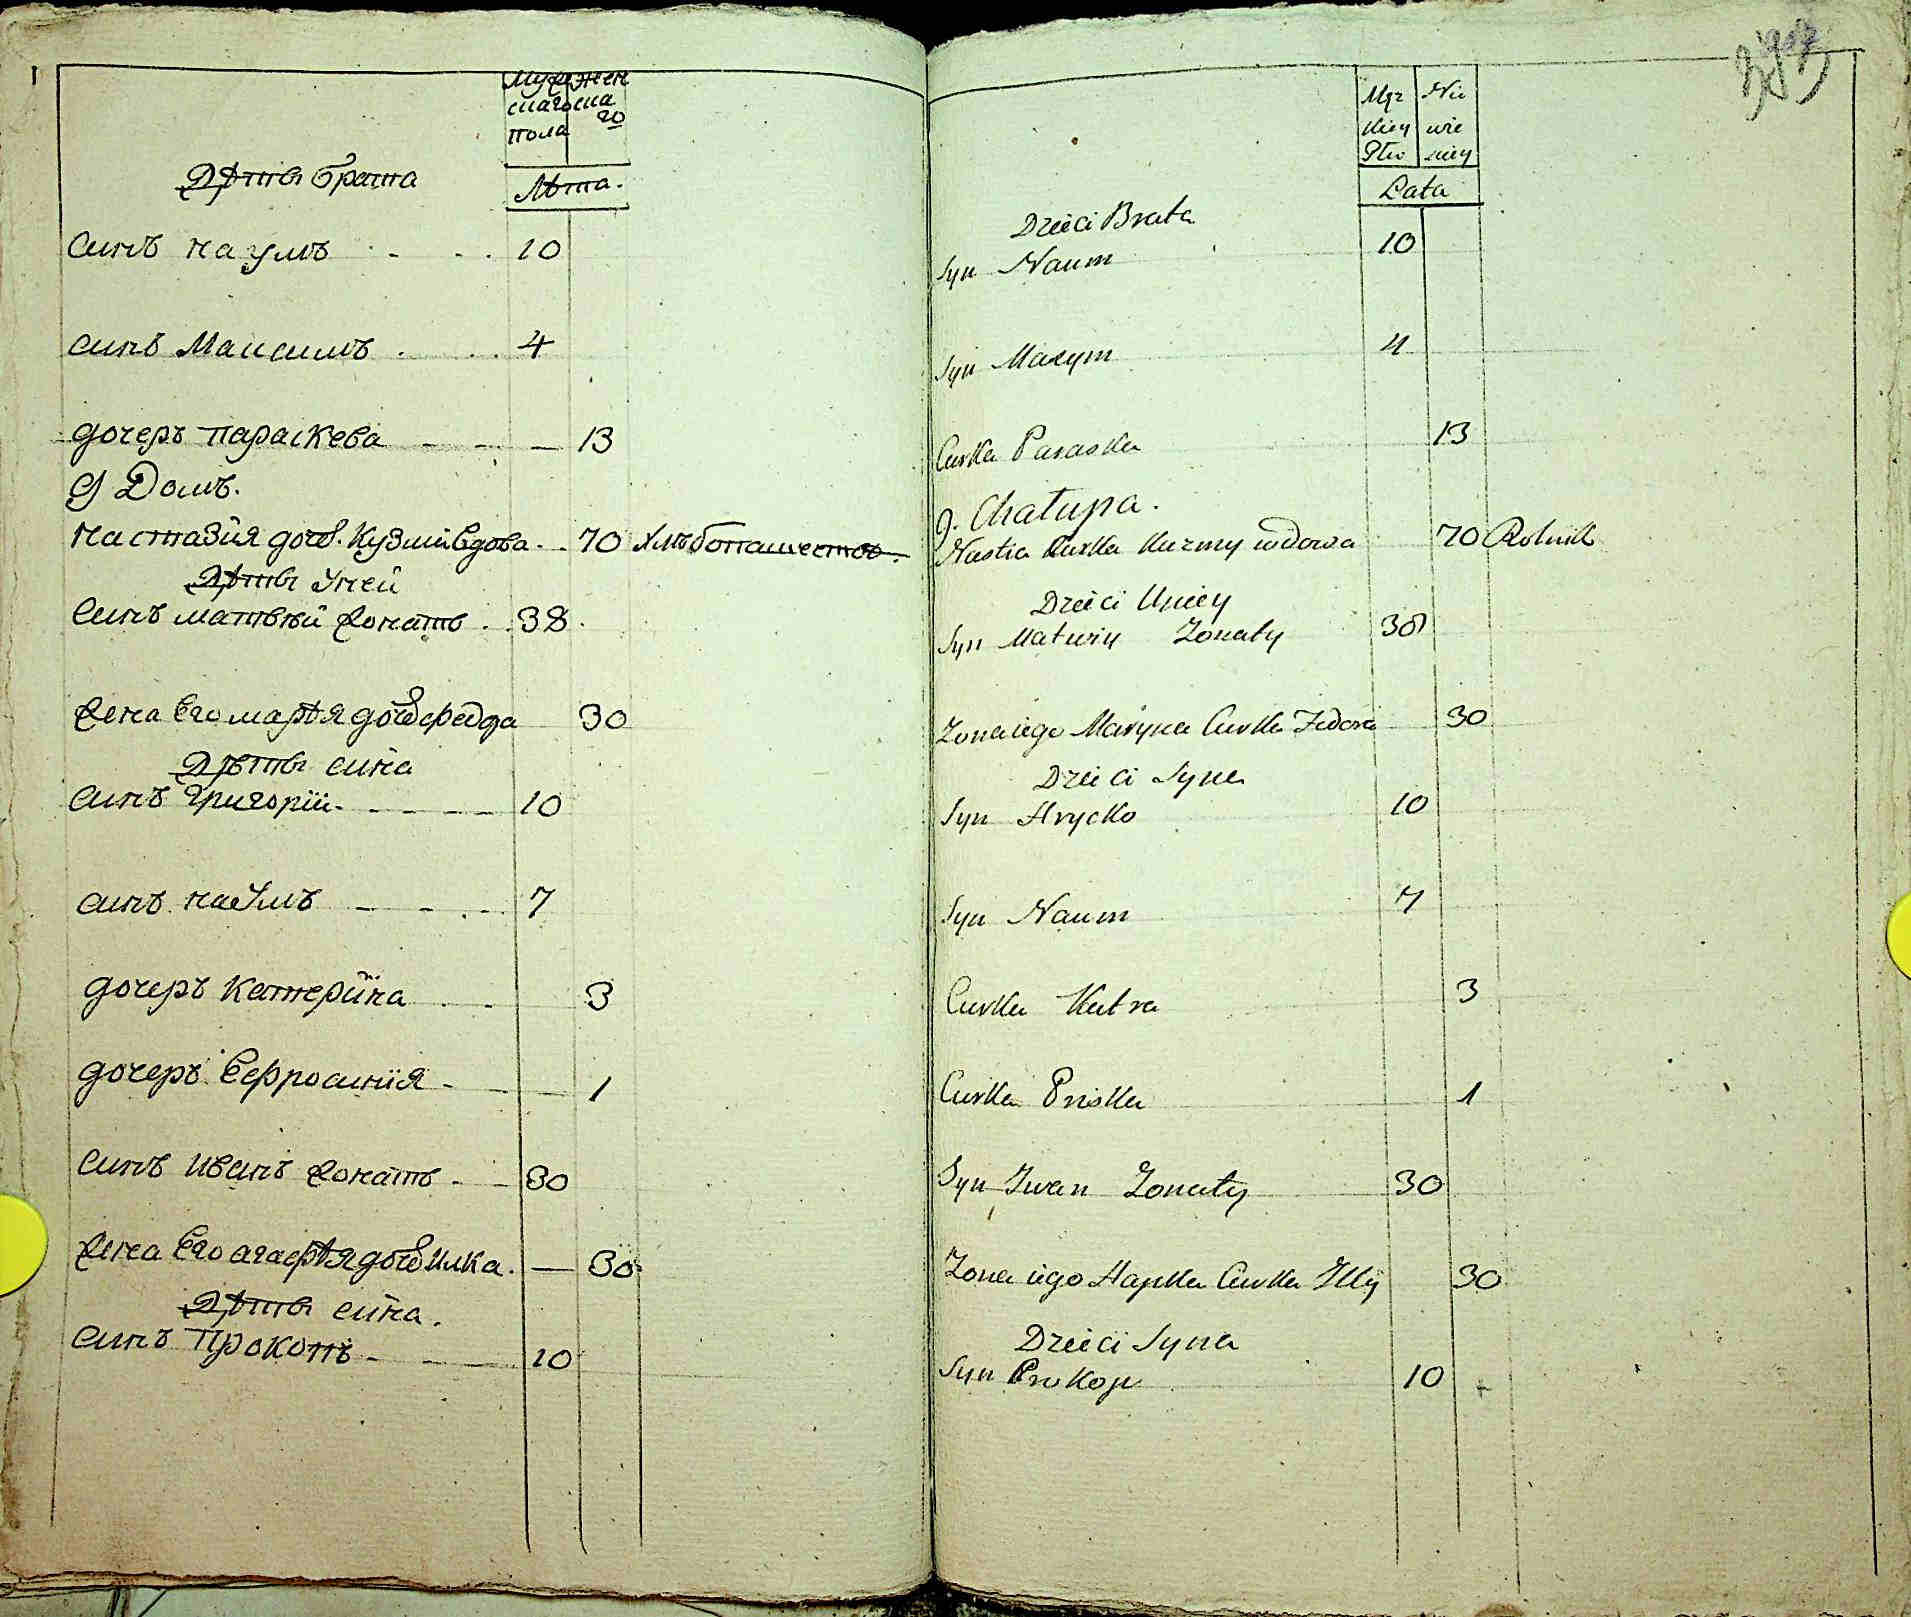 Мужескаго пола Женскаго
Лѣта.
Дѣти брата
синъ наумъ 10
синъ Максимъ 4
дочеръ параскева 13
9 Домъ.
настазїя доч. Кузми вдова 70 хлѣбопашество.
Дѣти Уней
Синъ матвѣй Жонатъ 38
Жена Его марѣя доч Федора 30
Дѣти сина
Синъ Григорїи 10
синъ наумъ 7
дочеръ катерина 3
дочеръ Еефросинїя 1
Синъ иванъ Жонатъ 30
Жена Его агафѣя доч илка. 30
Дѣти сина.
Синъ Прокопъ 10
Męz kiey Płci Nie wie sciey
Lata
Dzieci Brata
Syn Naum 10
Syn Maxym 4
Curka Paraska 13
9. Chałupa.
Nastia Curka Kuzmy wdowa 70 Rolnik
Dzieci Uniey
Syn Matwiy Zonaty 38
Zona iego Maryna Curka Fedora 30
Dzieci Syna
Syn Hrycko 10
Syn Naum 7
Curka Katra 3
Curka Priska 1
Syn Iwan Zonaty 30
Zona iego Hapka Curka Illij 30
Dzieci Syna
Syn Prokop 10